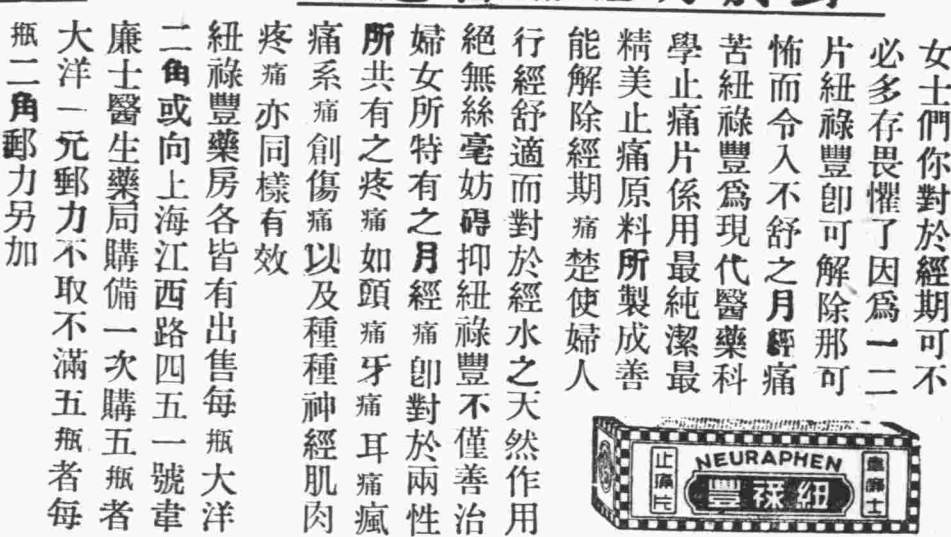 女士們你對於經期可不
必多存畏懼了因爲一二
片紐祿豐卽可解除那可
怖而令入不舒之月經痛
苦紐祿豐爲現代醫藥科
學止痛片係用最純潔最
精美止痛原料所製成善
能解除經期痛楚使婦人
行經舒適而對於經水之天然作用
絕無絲毫妨碍抑紐祿豐不僅善治
婦女所特有之月經痛卽對於兩性
所共有之疼痛如頭痛牙痛耳痛瘋
痛系痛創傷痛以及種種神經肌肉
疼痛亦同樣有效
紐祿豐藥房各皆有出售每瓶大洋
二角或向上海江西路四五一號韋
廉士醫生藥局購備一次購五瓶者
大洋一元郵力不取不滿五瓶者每
瓶二角郵力另加
NEURAPHEN
韋廉士
紐祿豐
止痛片